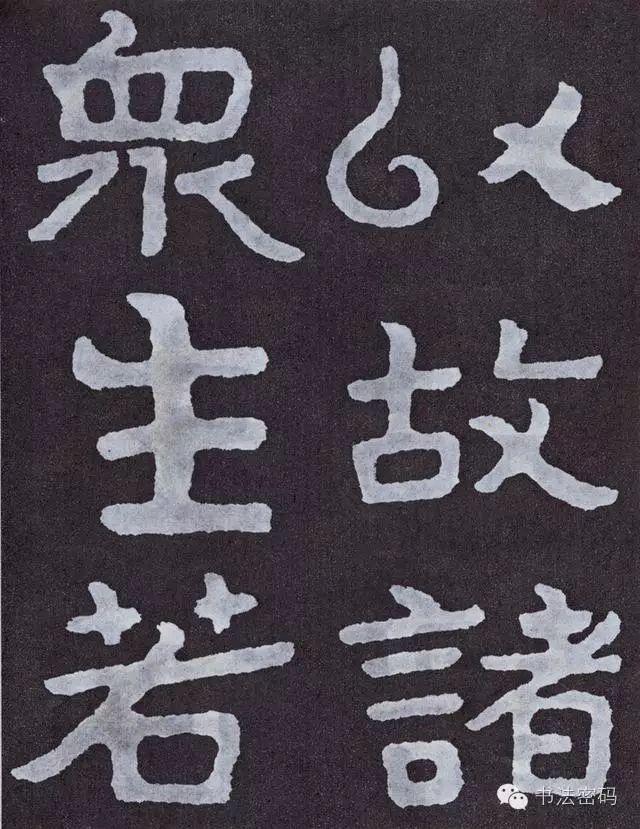 以故諸
眾生若
书法密码